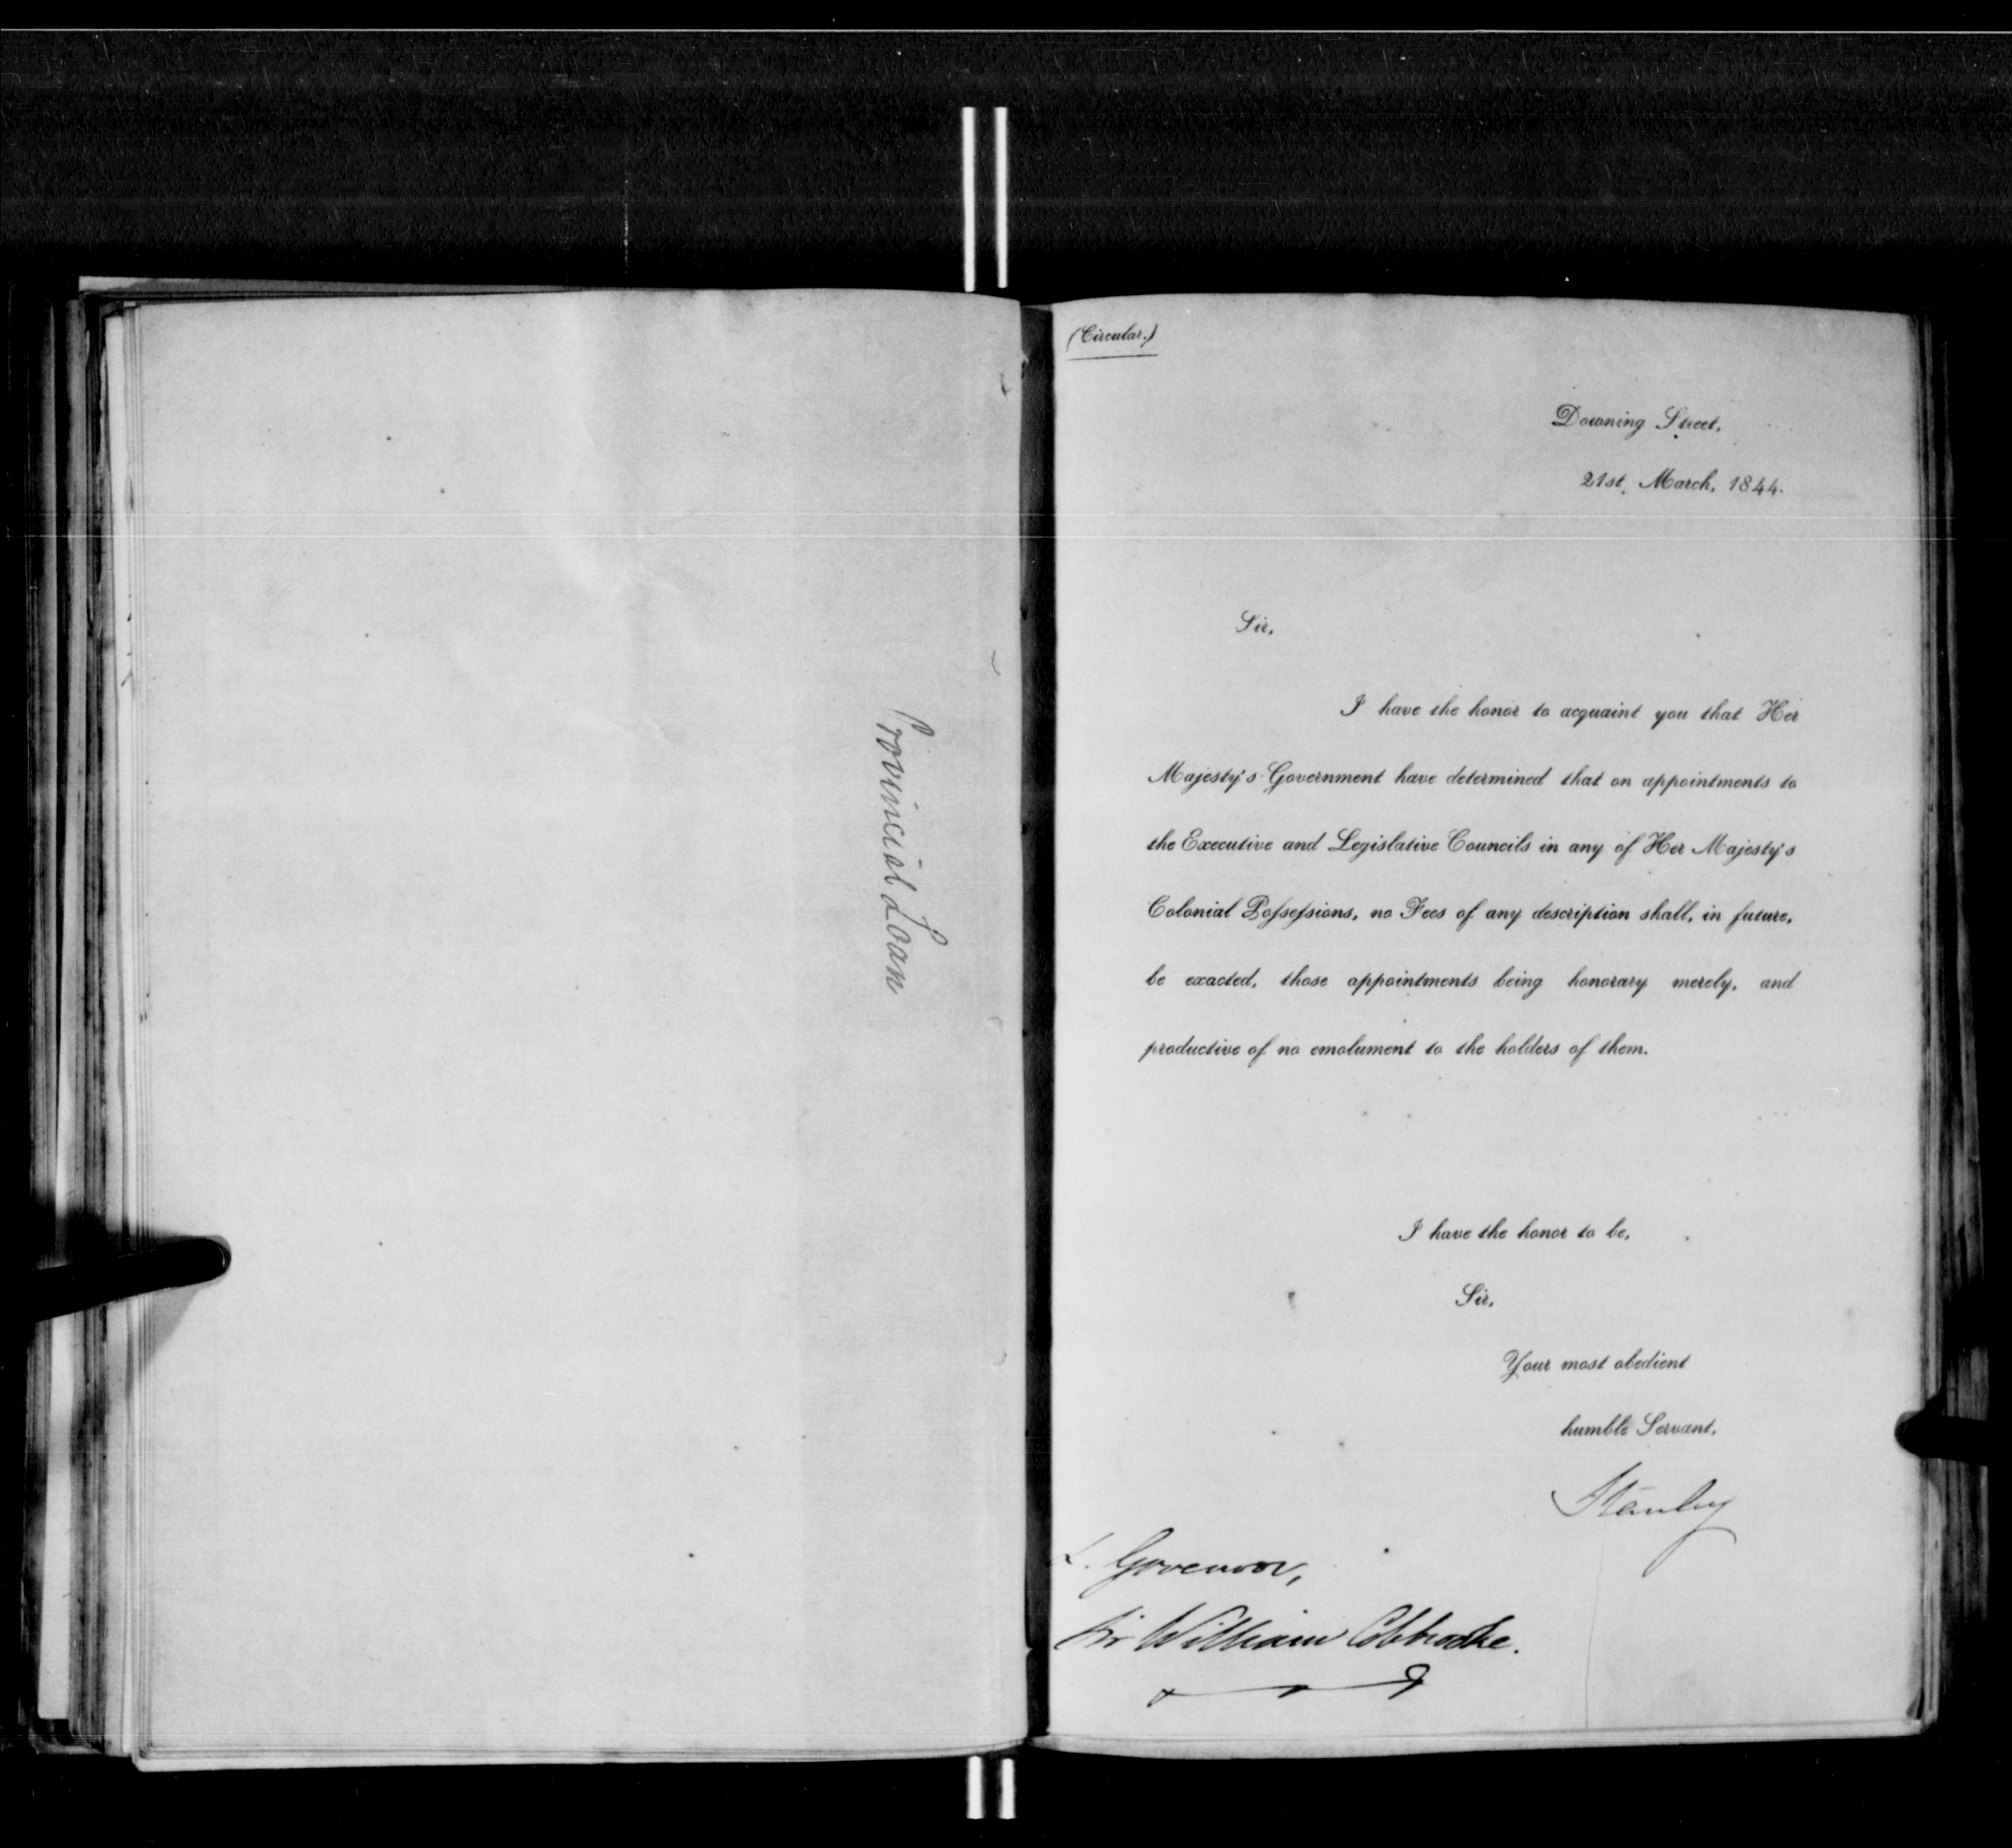 Provincial Loan
(Circular.)
Downing Street,
21st. March, 1844.
Sir,
I have the honor to acquaint you that Her
Majesty's Government have determined that on appointments to
the Executive and Legislative Councils in any of Her Majesty's
Colonial Poſseſsions, no Fees of any description shall, in future,
be exacted, those appointments being honorary merely, and
productive of no emolument to the holders of them.
I have the honor to be,
Sir,
Your most obedient
humble Servant,
Stanley
L. Governor,
Sir William Colebrooke.